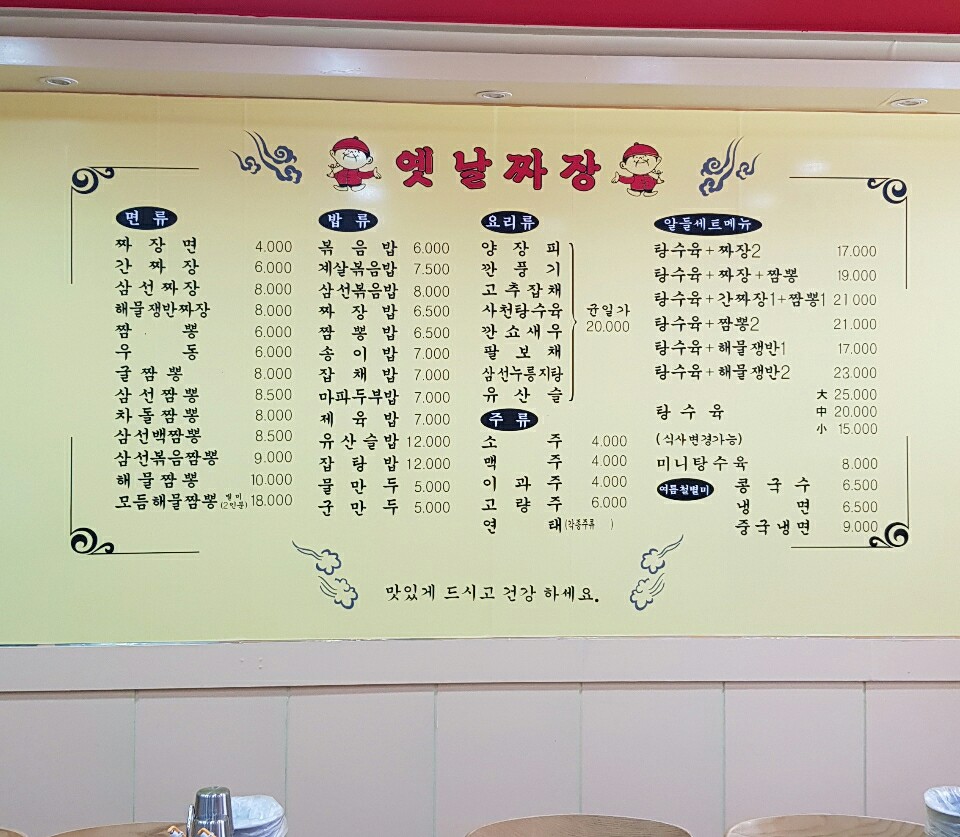 옛날짜장
면류
짜장면 4.000
간짜장 6.000
삼선짜장 8.000
해물쟁반짜장 8.000
짬뽕 6.000
우동 6.000
굴짬뽕 8.000
삼선짬뽕 8.500
차돌짬뽕 8.000
삼선백짬뽕 8.500
삼선볶음짬뽕 9.000
해물짬뽕 10.000
모듬해물짬뽕 별미 (2인분) 18.000
밥류
볶음밥 6.000
계살볶음밥 7.500
삼선볶음밥 8.000
짜장밥 6.500
짬뽕밥 6.500
송이밥 7.000
잡채밥 7.000
마파두부밥 7.000
제육밥 7.000
유산슬밥 12.000
잡탕밥 12.000
물만두 5.000
군만두 5.000
요리류
양장피
깐풍기
고추잡채
사천탕수육
깐쇼새우
팔보채
삼선누룽지탕
유산슬
균일가
20.000
주류
소주 4.000
맥주 4.000
이과주 4.000
고량주 6.000
연태(각종주류 )
알뜰세트메뉴
탕수육+짜장2 17.000
탕수육+짜장+짬뽕 19.000
탕수육+간짜장1+짬뽕1 21.000
탕수육+짬뽕2 21.000
탕수육+해물쟁반1 17.000
탕수육+해물쟁반2 23.000
大 25.000
탕수육 中 20.000
小 15.000
(식사변경가능)
미니탕수육 8.000
여름철별미
콩국수 6.500
냉면 6.500
중국냉면 9.000
맛있게 드시고 건강 하세요.